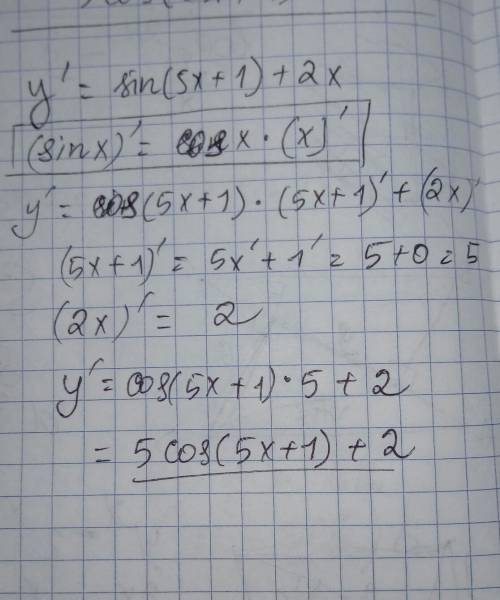 y' = sin(5x+1)+2x
(sin x)' = cos x · (x)'
y' = cos(5x+1) · (5x+1)' + (2x)'
(5x+1)' = 5x' + 1' = 5+0 = 5
(2x)' = 2
y' = cos(5x+1) · 5 + 2
= 5 cos(5x+1) + 2